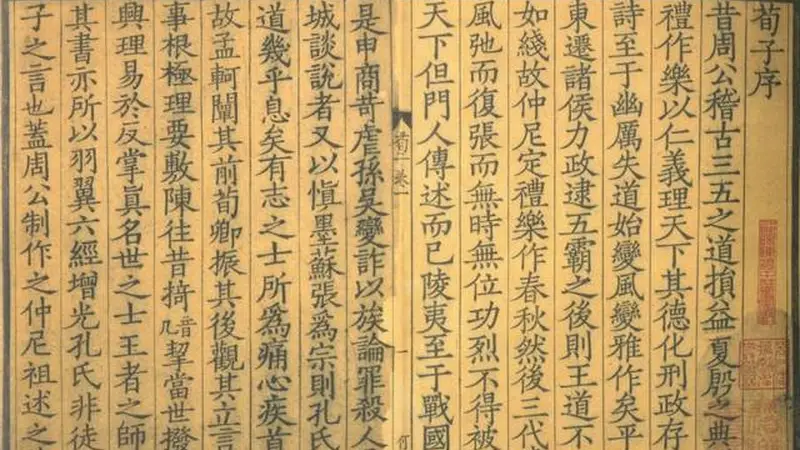 荀子序
昔周公稽古三五之道損益夏殷之典
禮作樂以仁義理天下其德化刑政存
詩至于幽厲失道始變風變雅作矣平
東遷諸侯力政逮五霸之後則王道不
如綫故仲尼定禮樂作春秋然後三代
風弛而復張而無時無位功烈不得被
天下但門人傳述而已陵夷至于戰國
是申商苛虐孫吳變詐以族論罪殺人
城談說者又以慎墨蘇張爲宗則孔氏
道幾乎息矣有志之士所爲痛心疾首
故孟軻闡其前荀卿振其後觀其立言
事根極理要敷陳往昔掎音几挈當世撥
興理易於反掌眞名世之士王者之師
其書亦所以羽翼六經增光孔氏非徒
子之言也蓋周公制作之仲尼祖述之